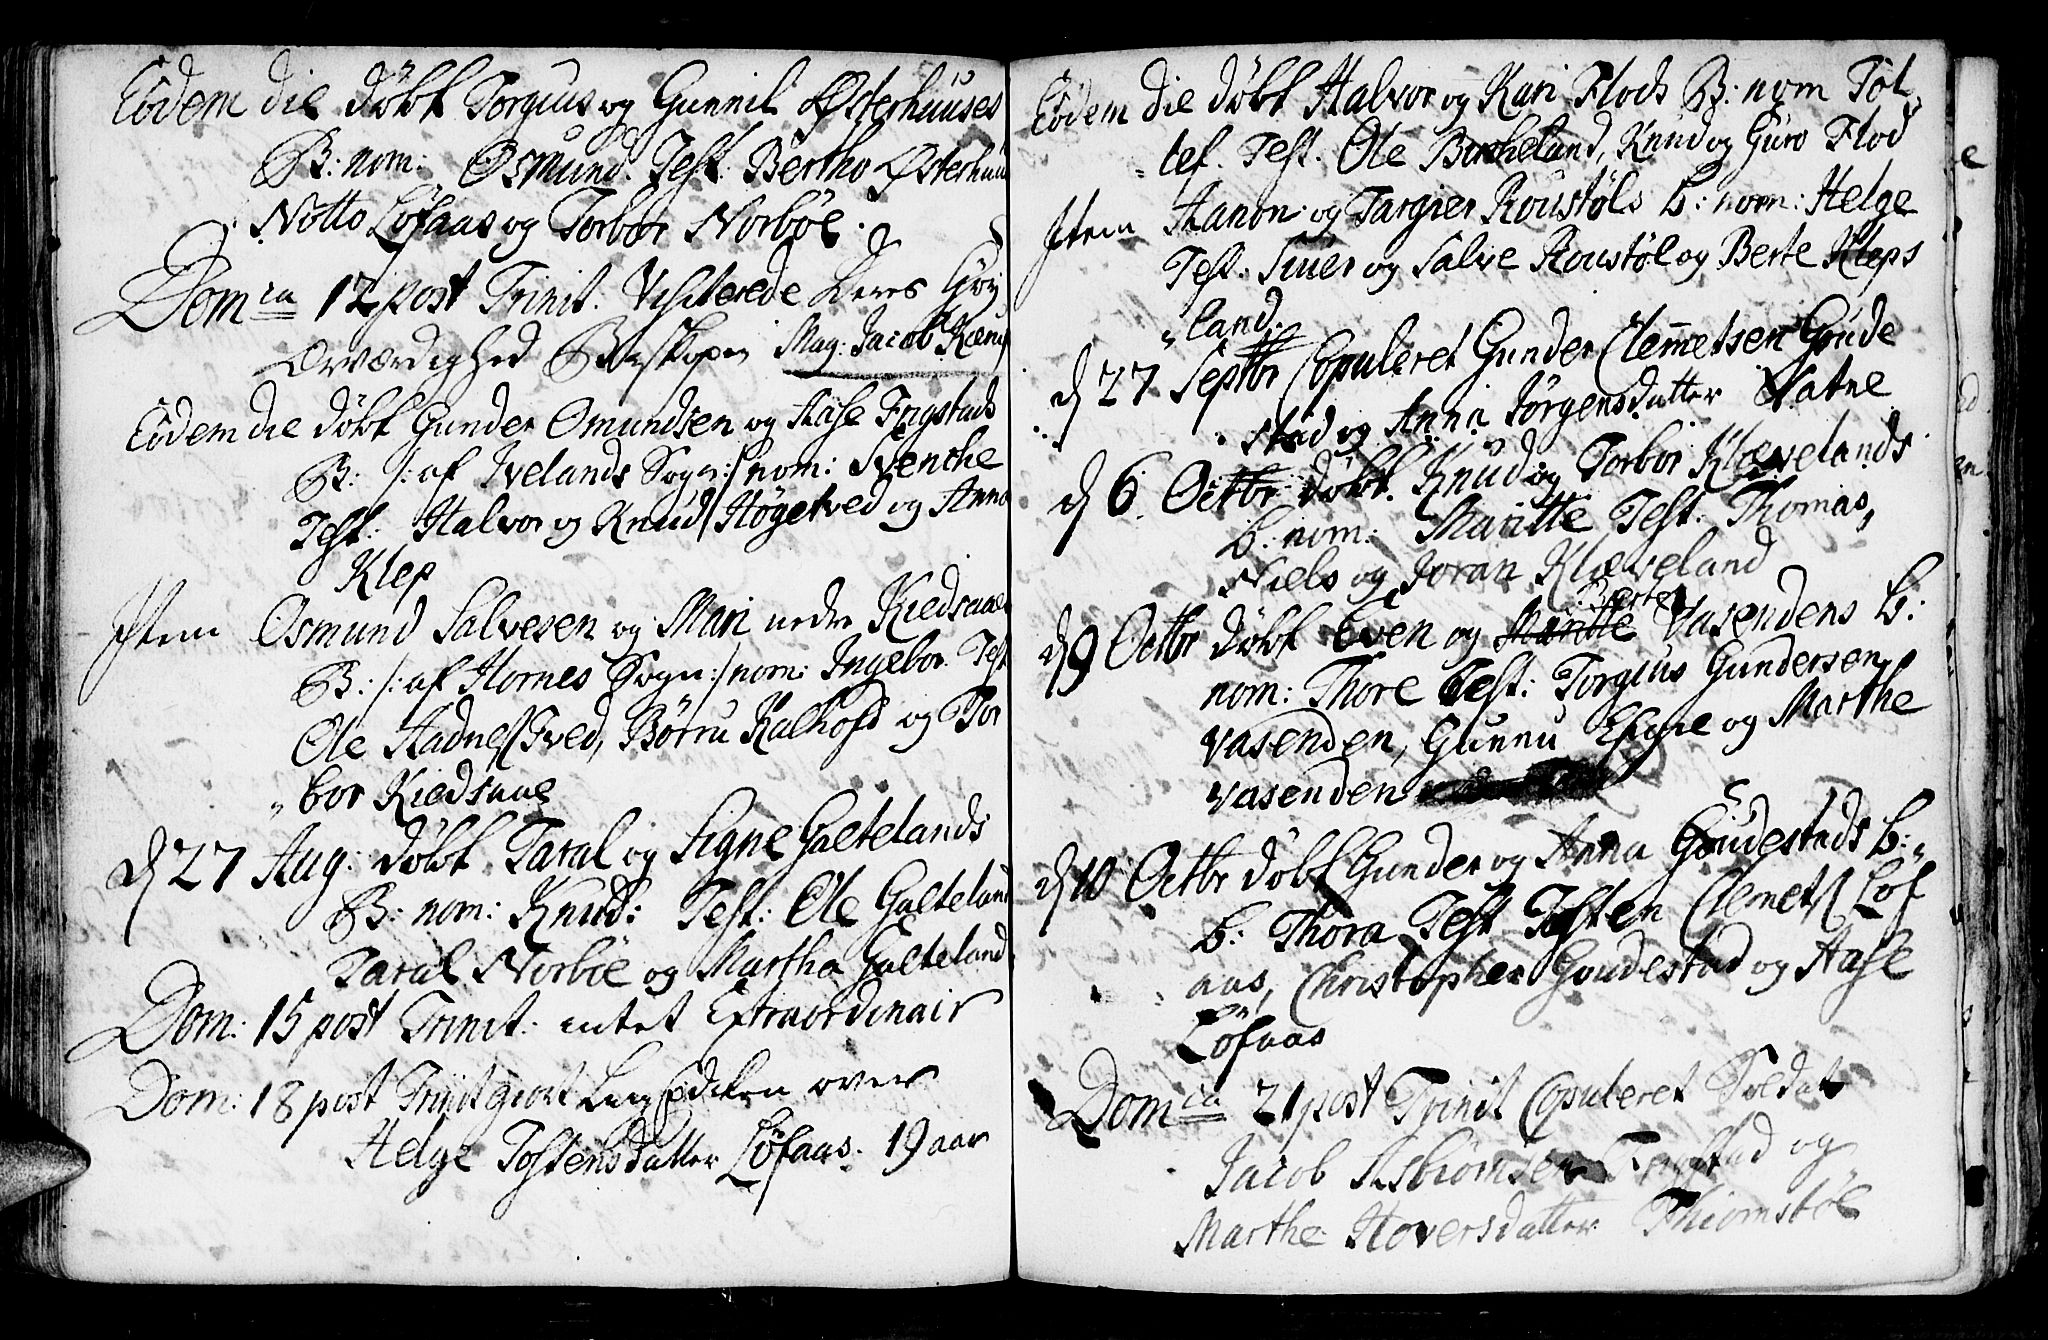 Eodem die døbt Torgius og Gunnil Østerhuuses
B: nom: Osmund. Test: Bertho Østerhuus
Notto Löfaas og Torbor Norböe.
Dom ca 12 post Trinit. Visiterede Deres Höy
Ærværdighed Biskopen Mag: Jacob Kærup
Eodem die döbt Gunder Omundsen og Aase Frigstads
B: /: af Ivelands Sogn :/ nom: Svenche
Test: Halvor og Knud Högetved og Anna
Klep
Item Osmund Salvesen og Mari nedre Kiedsaaes
B: /: af Hornes Sogn :/ nom: Ingebor. Test
Ole Aadnes Tved, Börru Kalhofd og Tor
„bor Kiedsaae
d 27 Aug: döbt Taral og Signe Galtelands
B: nom: Knud: Test: Ole Galteland
Taral Norböe og Martha Galteland
Dom: 15 post Trinit: intet Extraordinair
Dom: 18 post Trinit giort Liig Prediken over
Helge Tostensdatter Löfaas. 19 aar
Eodem die döbt Halvor og Kari Flods B: nom Töl
„lef. Test. Ole Birkeland, Knud og Guro Flod
Item Aanon og Targier Roustöls B: nom: Helge
Test: Siuer og Salve Roustöl og Berte Kleps
„land.
d 27 Septbr Copuleret Gunder Clemmetsen Goude
„stad og Anna Jörgensdatter Vatne
d 6 Octbr döbt. Knud og Torbor Klævelands
B: nom: Maritte Test: Thomas,
Niels og Joran Klæveland
Berte
d 9 Octbr döbt Even og Maritte Vasendens B:
nom: Thore Test: Torgius Gundersen
Vasenden, Gunnu og Marthe
Vasenden
d 10 Octbr döbt Gunder og Anna Goudestads B:
B: Thora Test Tosten Clemets. Löf
„aas, Christopher Goudestad og Aase
Löfaas
Dom ca 21 post Trinit Copuleret Soldat
Jacob Asbiörnsen Frigstad og
Marthe Hoversdatter Thiomstöl